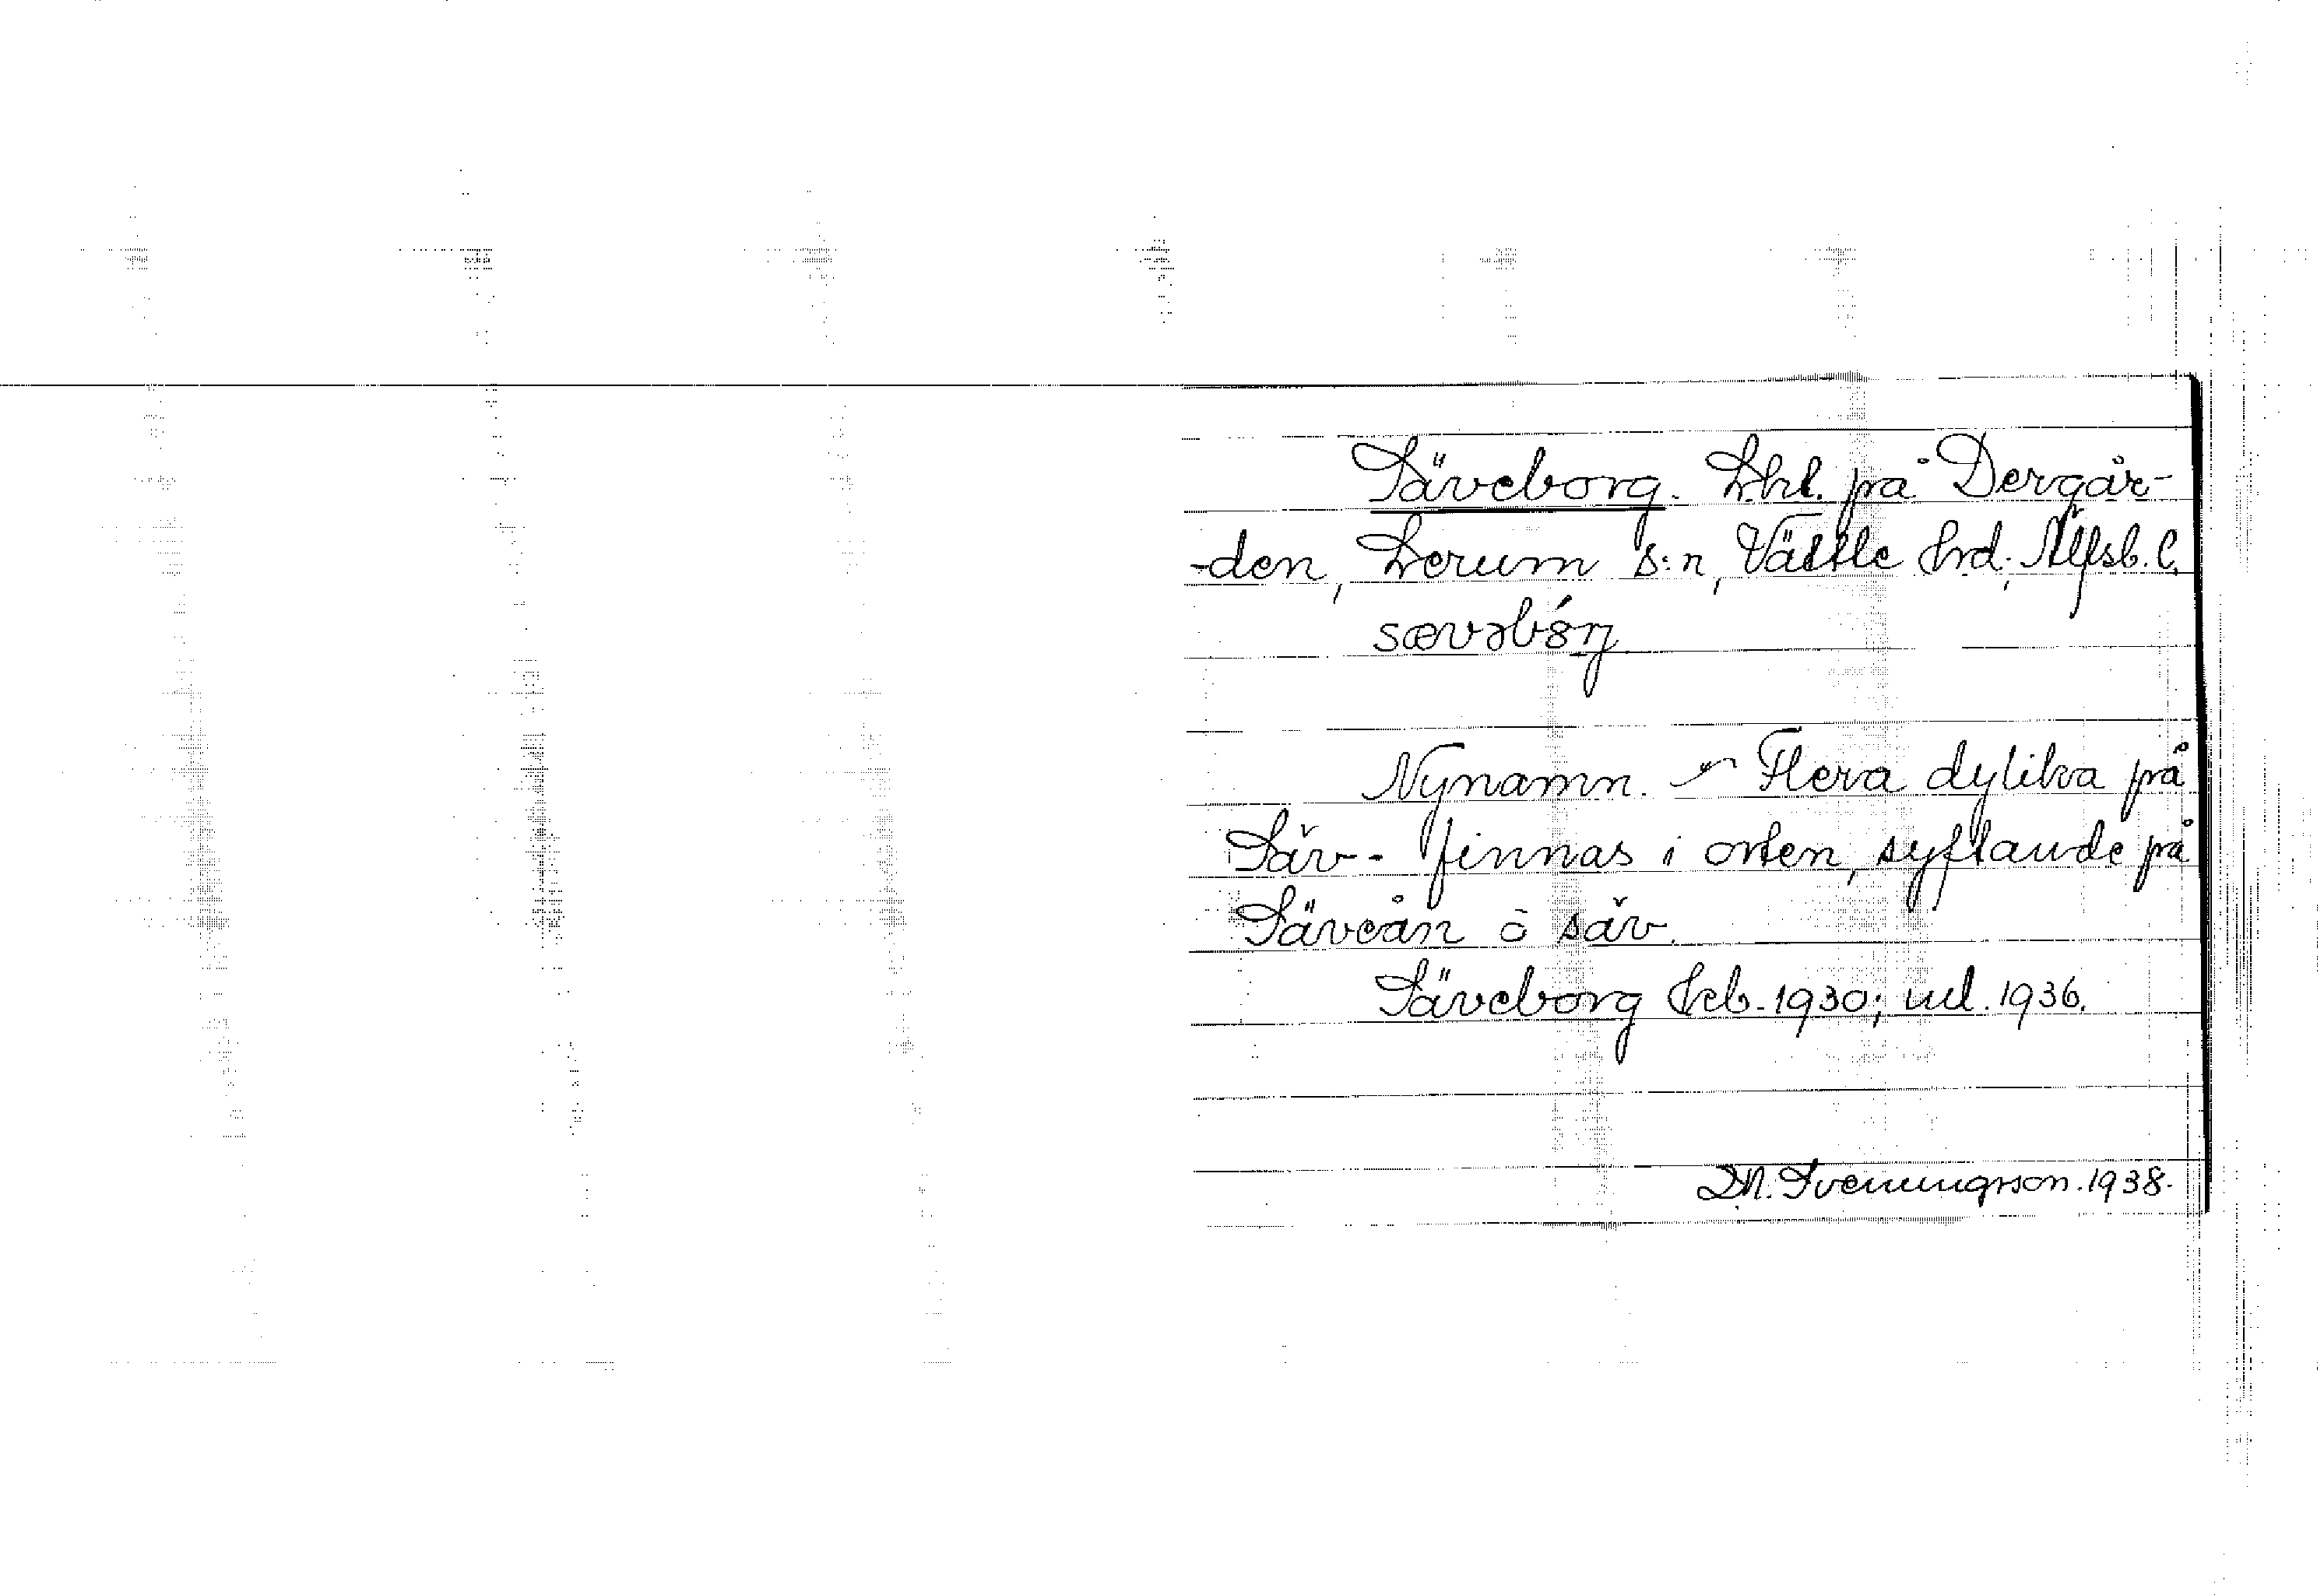 Säveborg. Lht. på Dergår-
-den, Lerum s:n, Vättle hrd. Älfsb. l.
sævəbórj
Nynamn. - Flera dylika på
Säv- finnas i orten, syftande på
Säveån o säv.
Säveborg kb. 1930; ml. 1936.
D.N. Svenningsson. 1938.